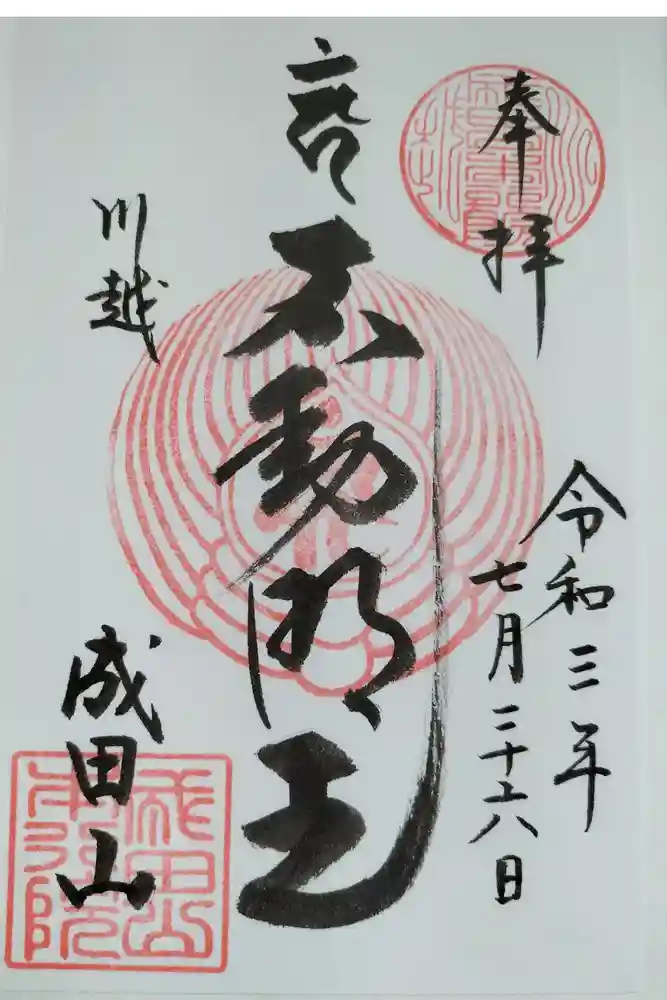 奉拝
令和三年
七月二十六日
不動明王
川越
成田山
成田山
本行院